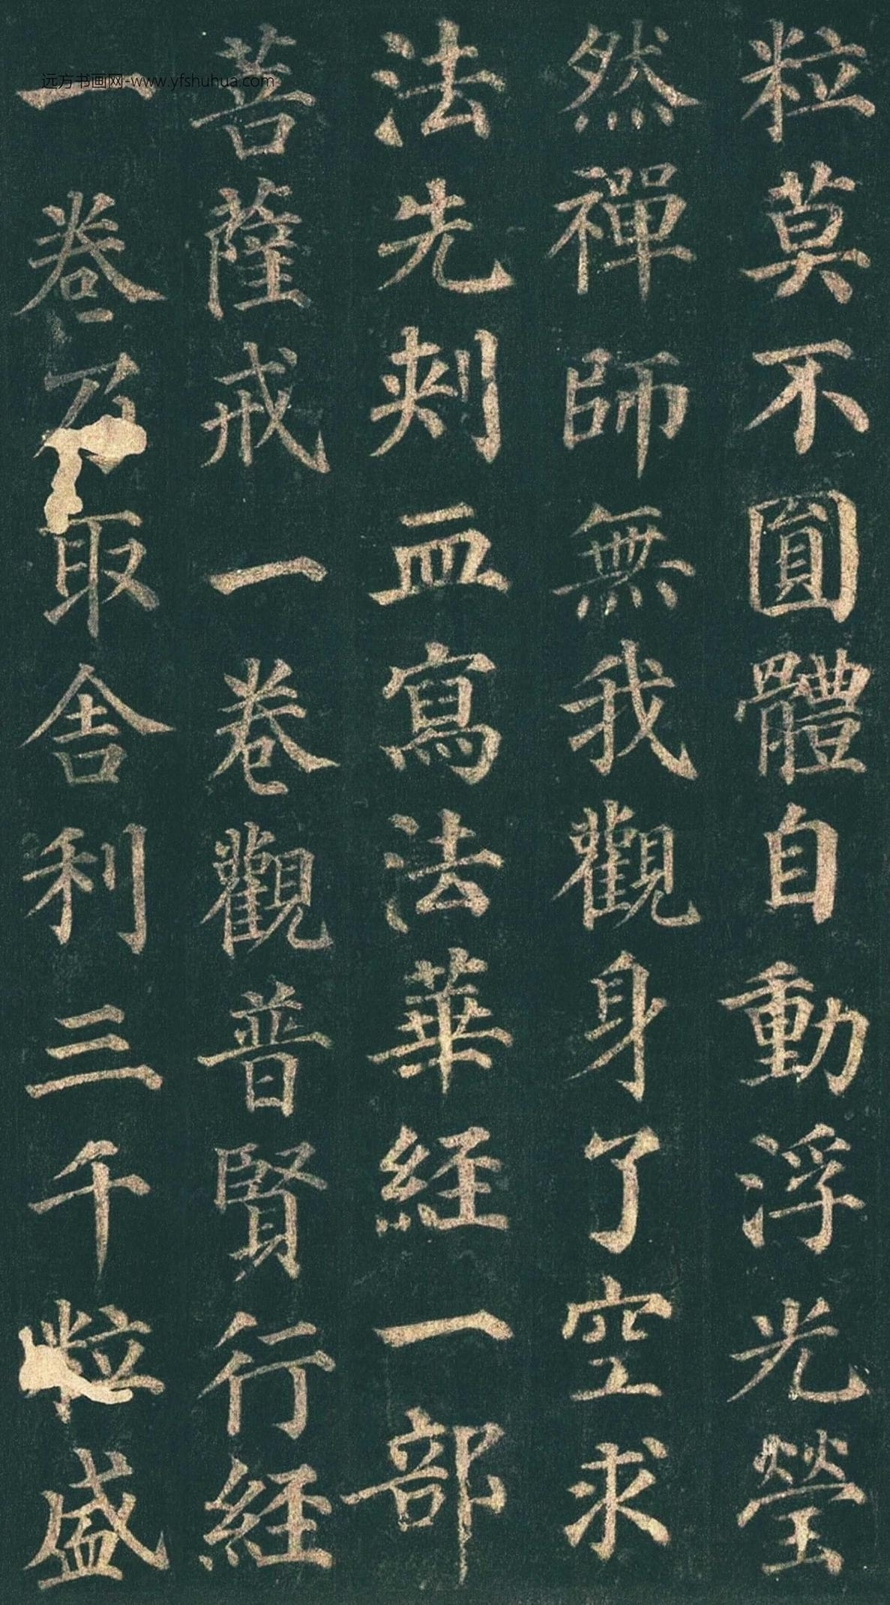 粒莫不圓體自動浮光瑩
然禪師無我觀身了空求
法先刺血寫法華經一部
菩薩戒一卷觀普賢行經
一卷乃取舍利三千粒盛
远方书画网-www.yfshuhua.com